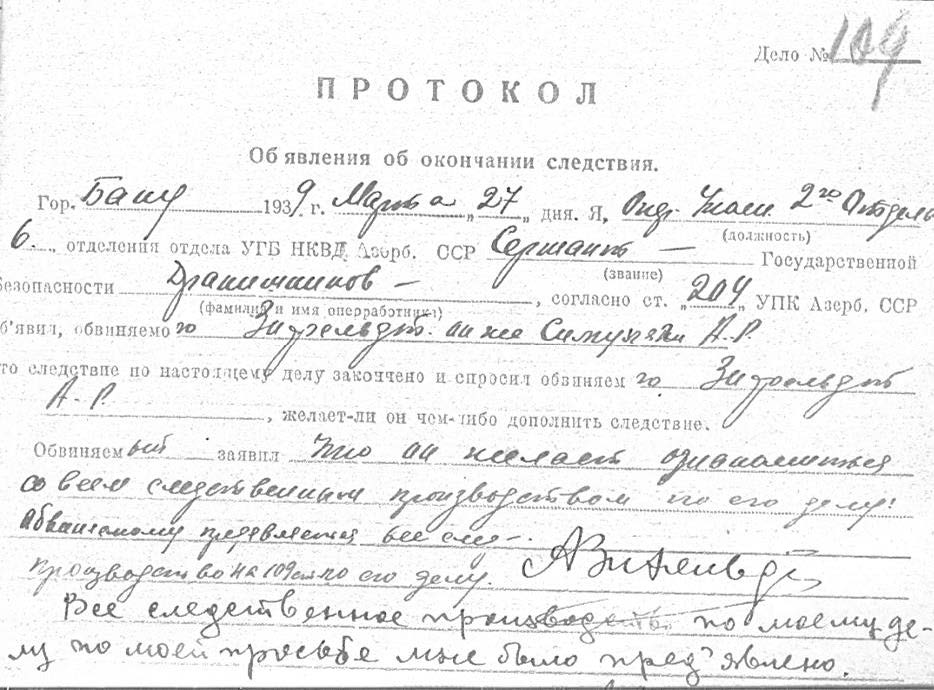 Дело № 109
ПРОТОКОЛ
Об'явления об окончании следствия.
Гор. Баку 1939 г. Марта „27„ дня. Я, 2го Отдела
(должность)
6 „ отделения отдела УГБ НКВД Азерб. ССР Сержант — Государственной
(звание)
Безопасности Дранишников — , согласно ст. „204„ УПК Азерб. ССР
(фамилия и имя оперработника)
б'явил, обвиняемого Зифельдт он же Симумяги А.Р.
то следствие по настоящему делу закончено и спросил обвиняемго Зифельдт
А.Р. , желает-ли он чем-либо дополнить следствие.
Обвиняемый заявил Что он желает ознакомиться
со всем следственным производством по его делу:
Обвиняемому предъявляется все след-.
производство на 109 по его делу. АЗифельдт
Все следственное производство по моему де-
лу по моей просьбе мне было пред'явлено.